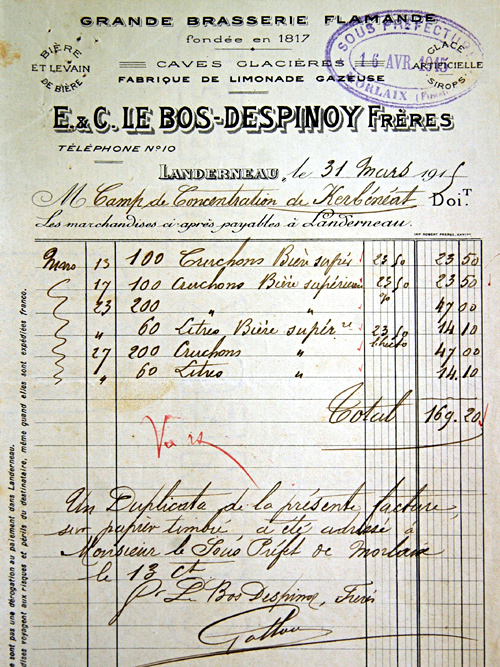 GRANDE BRASSERIE FLAMANDE
fondée en 1817
BIÈRE
ET LEVAIN
DE BIÈRE
CAVES GLACIÈRES
FABRIQUE DE LIMONADE GAZEUSE
GLACE
ARTIFICIELLE
SIROPS
SOUS PRÉFECTURE
16 AVR 1915
MORLAIX (Finistère)
E. & C. LE BOS-DESPINOY FRÈRES
TÉLÉPHONE No 10
LANDERNEAU, le 31 Mars 1915
M Camp de Concentration de Kerbénéat Doit
Les marchandises ci-après payables à Landerneau.
Mars 13 100 Cruchons Bière supre 23 50 23 50
17 100 Cruchons Bière supérieure 23 50 23 50
23 200 " " % 47 00
" 60 Litres Bière supérre 23 50 14 10
27 200 Cruchons " 47 00
" 60 Litres " 14.10
Total 169.20
Vu
Un Duplicata de la présente facture,
sur papier timbré a été adressé à
Monsieur le Sous Préfet de Morlaix
le 13 Ct
Pr Le Bos Despinoy, Frères
sont pas une dérogation au paiement dans Landerneau.
voyagent aux risques et périls du destinataire, même quand elles sont expédiées franco.